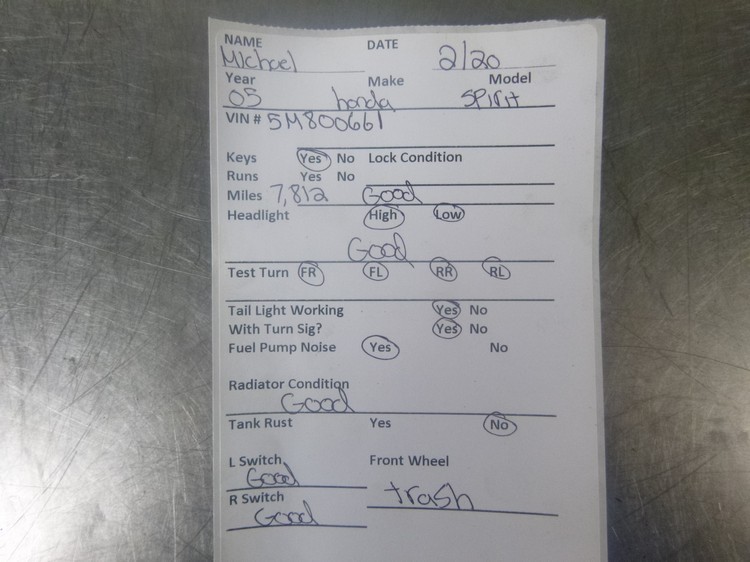 NAME Michael DATE 2/20
Year Make Model
05 honda Spirit
VIN # 5M800661
Keys Yes No Lock Condition
Runs Yes No
Miles 7,812 Good
Headlight High Low
Good
Test Turn FR FL RR RL
Tail Light Working Yes No
With Turn Sig? Yes No
Fuel Pump Noise Yes No
Radiator Condition
Good
Tank Rust Yes No
L Switch Front Wheel
Good
R Switch trash
Good